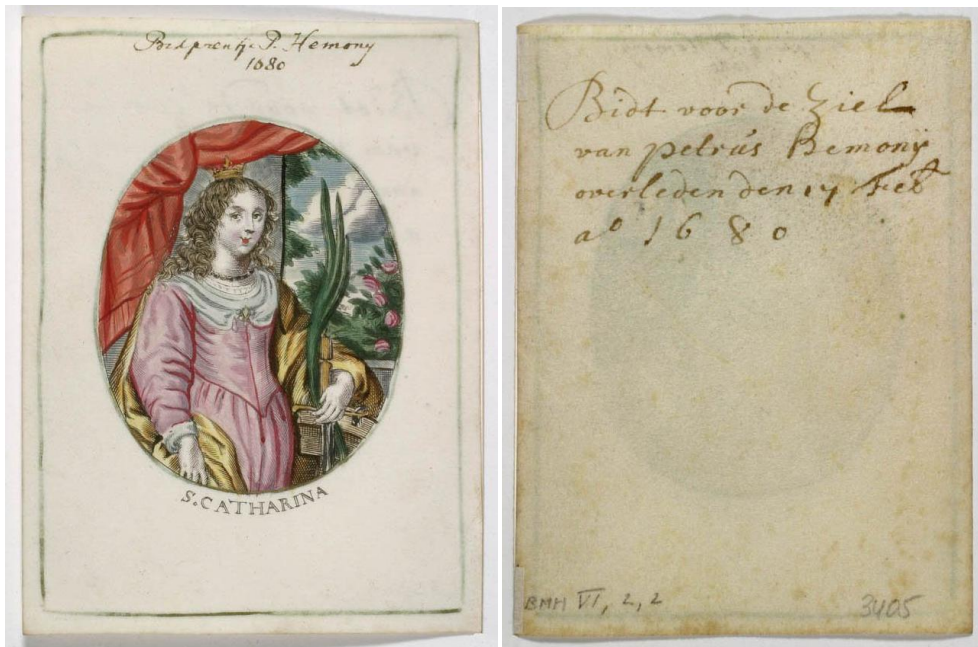 Bidprentje P. Hemony
1680
S. CATHARINA
Bidt voor de ziel
van petrús Hemonÿ
overleden den 17 feb
aº 1680
BMH VI, 2, 2
3405